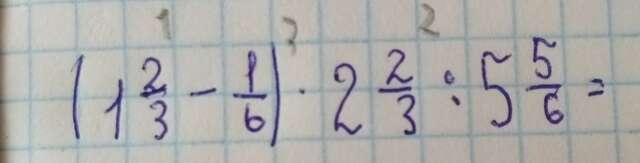 1 3 2
(1 2/3 - 1/6) · 2 2/3 : 5 5/6 =